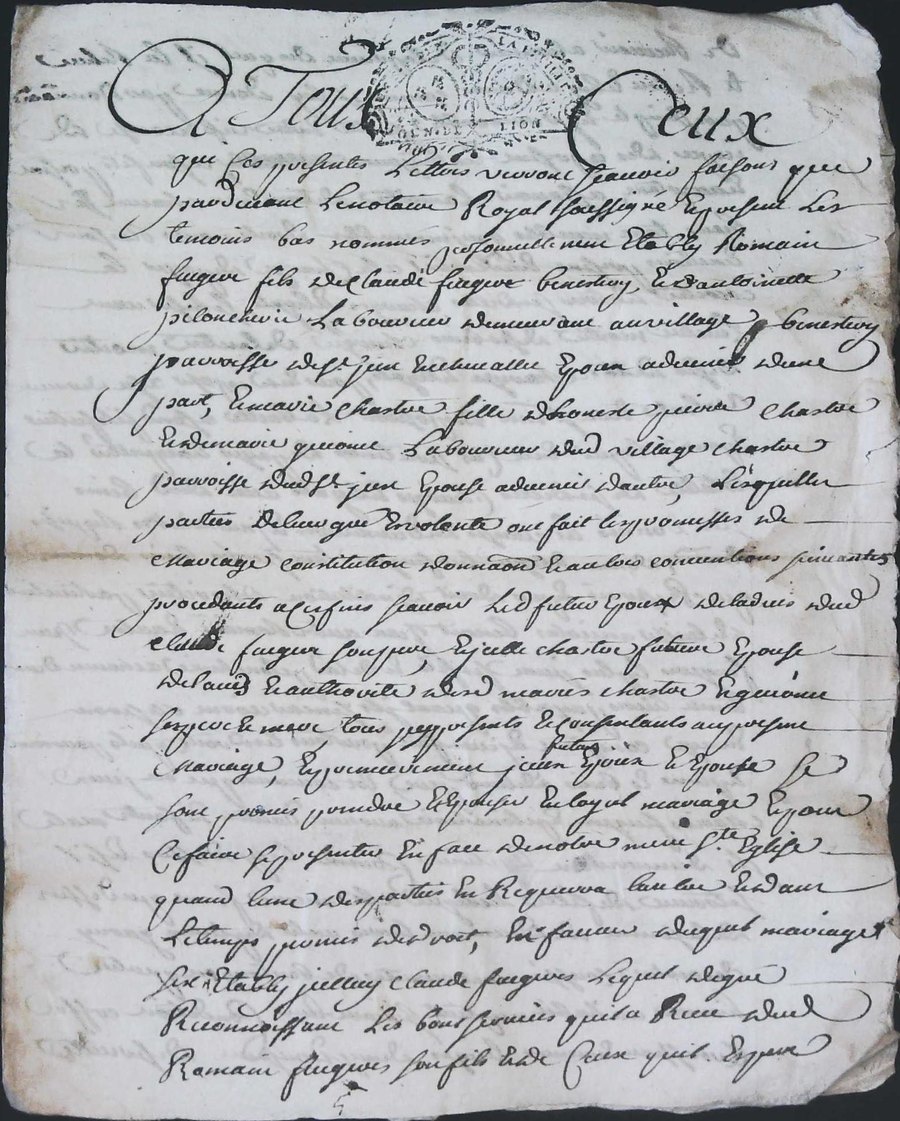 A Tous Ceux
GEN. DE LION
que Ces presentes Lettres verront scavoir faisons que
pardevant Le notaire Royal soussigné Et present Les
temoins bas nommés personnellement Etably Romain
fils de Claude Et d'antoinette
Laboureur demeurant au village
parroisse de st jean Epoux advenir d'une
part, Et marie Chastre fille d'honeste pierre Chastre
Et de marie Laboureur dud village Chastre
parroisse dud st jean Epouse advenir d'autre, Lesquelles
parties de leur gré Et volonté ont fait les promesses de
Mariage Constitution donnaon Et autres Conventions suivantes
procedants a Ces fins scavoir Led futur Epoux de ladvis dud
Claude son pere, Et jcelle Chastre future Epouse
de l'avis Et authorité desd mariés Chastre Et
ses pere Et mere, tous presents Et Consentants au present
Mariage, Et premierement jceux futurs Epoux Et Epouse se
sont promis prendre Et Epouser En loyal mariage Et pour
Ce faire se presenter En face de notre mere Ste Eglise
quand l'une des parties En Requerra l'autre Et dans
Le temps permis de droit, En faveur duquel mariage
s'est Etably jcelluy Claude Lequel de gré
Reconnoissant Les bons services qu'il a Reçu dud
Romain son fils Et de Ceux qu'il Espere